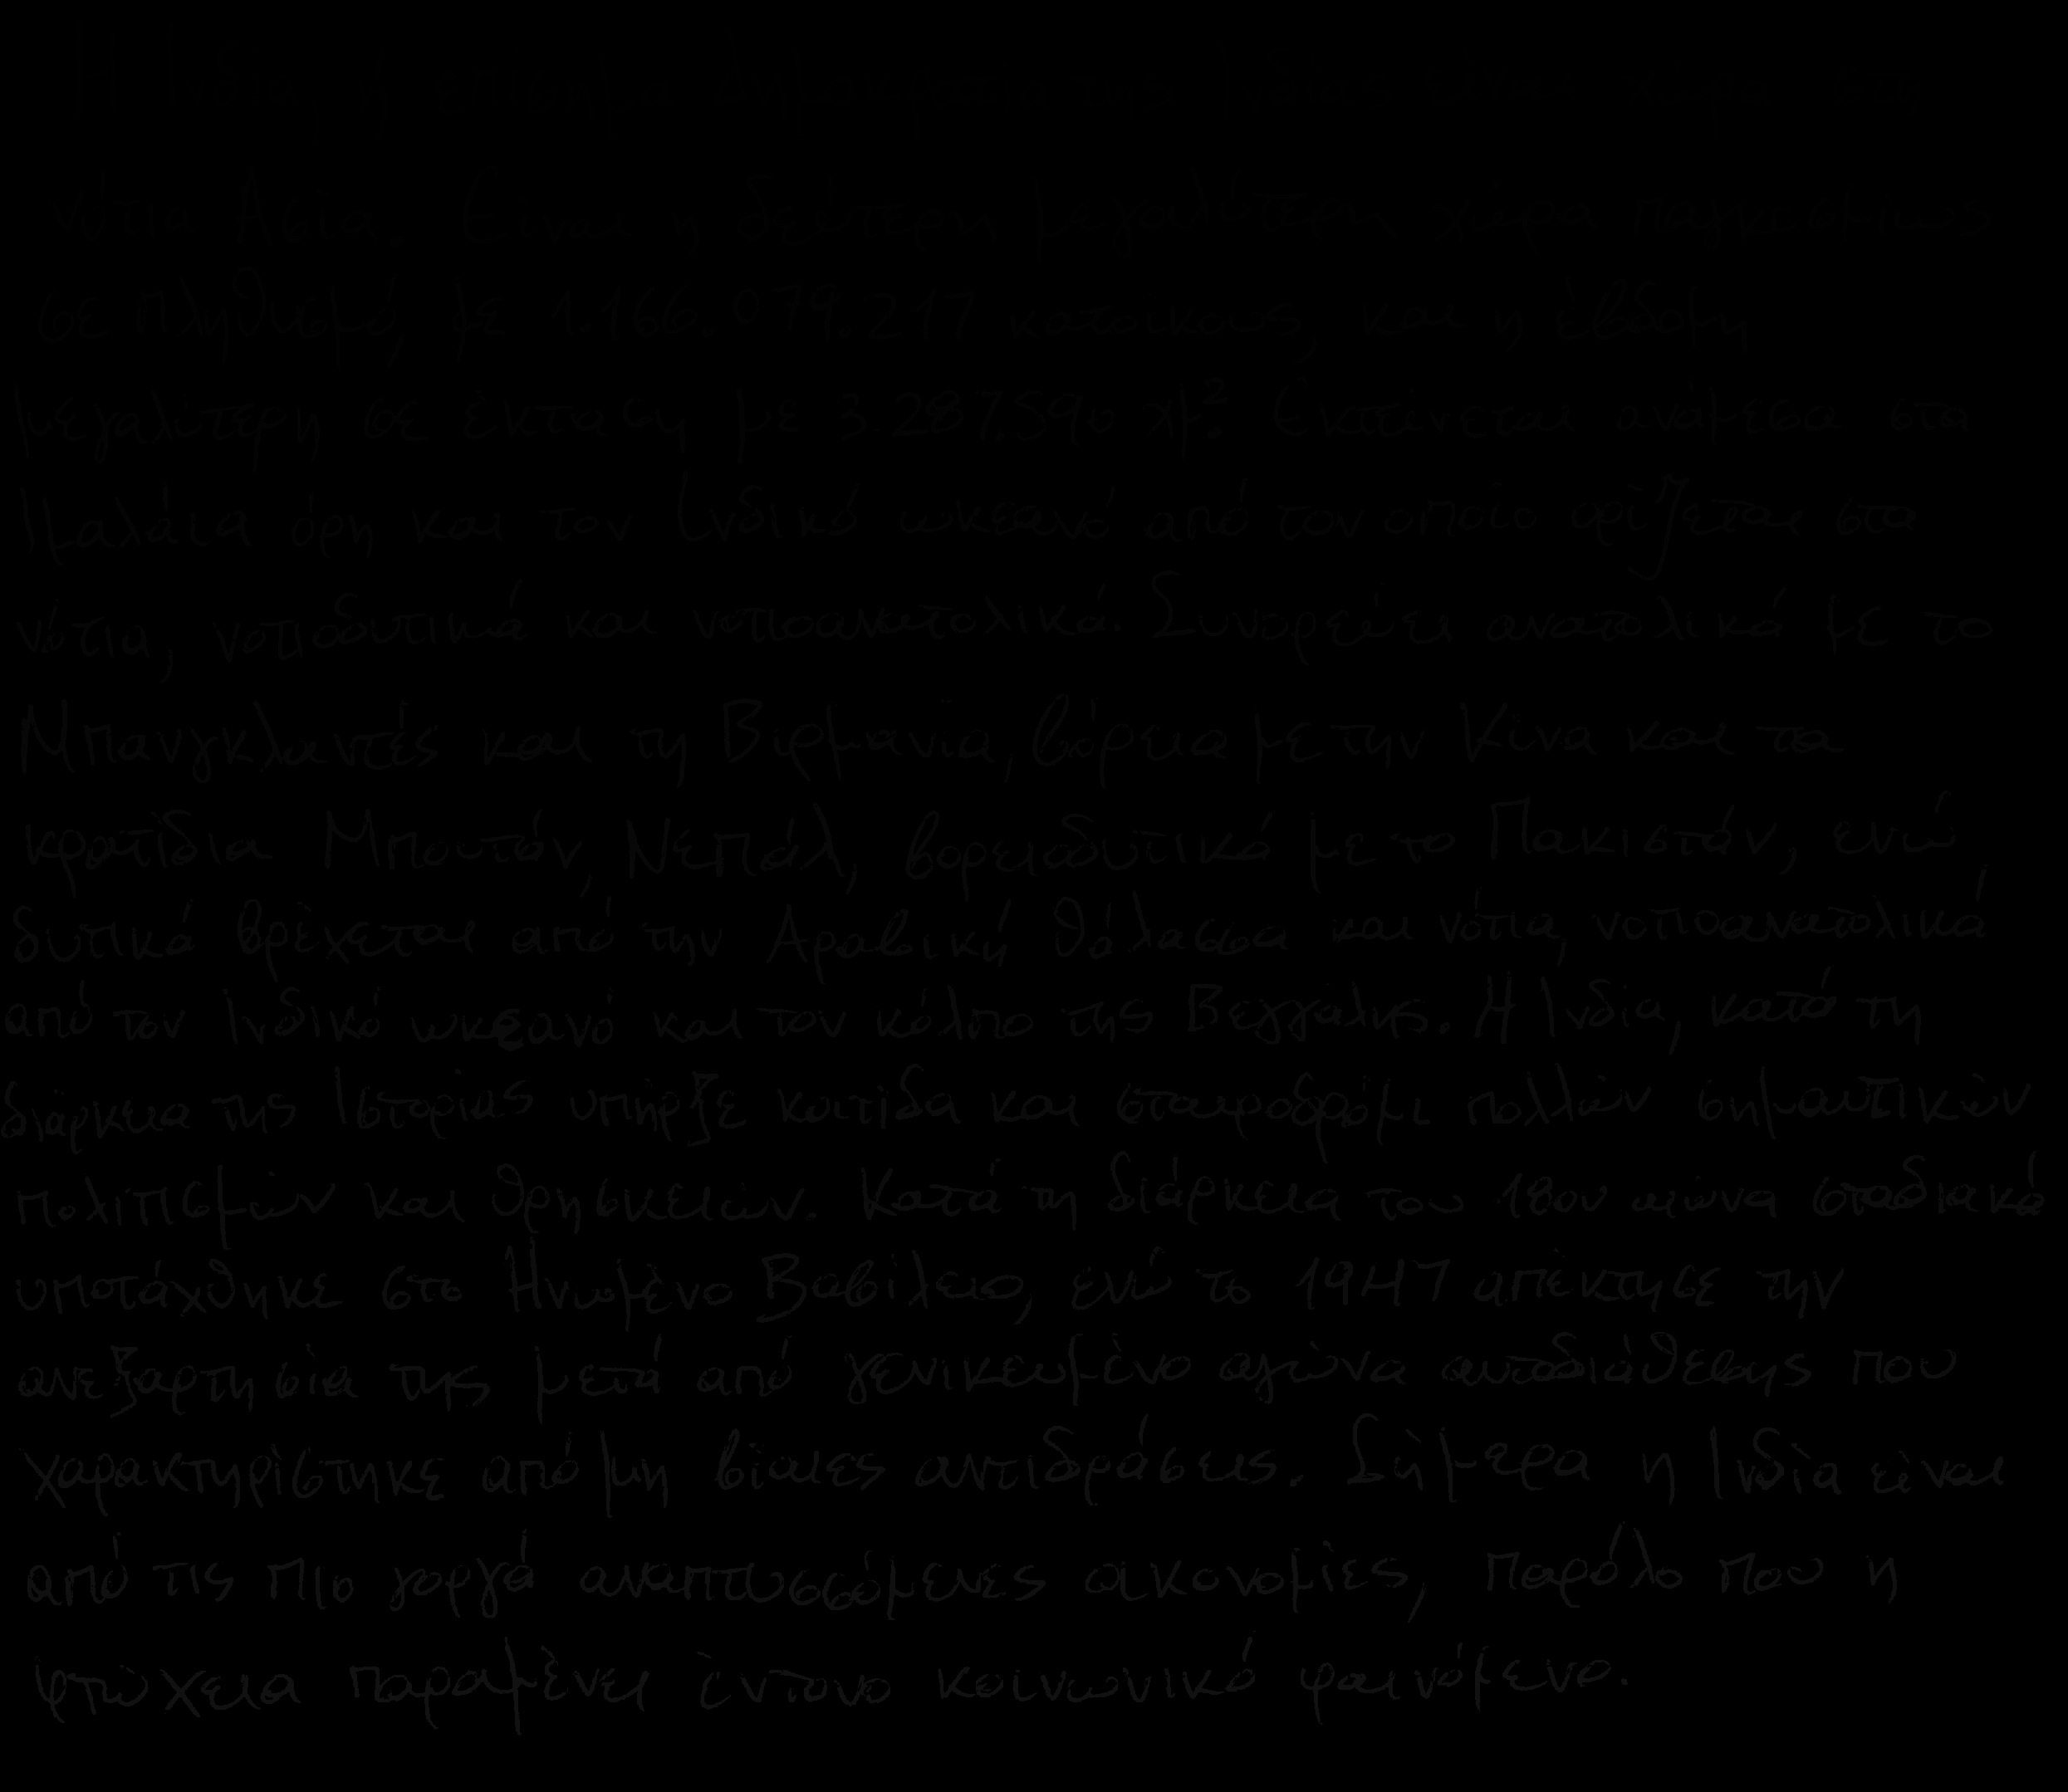 νότια Ασία. Είναι η δεύτερη μεγαλύτερη χώρα παγκοσμίως
σε πληθυσμό, με 1.166.079.217 κατοίκους, και η έβδομη
μεγαλύτερη σε έκταση με 3.287.590 χμ². Εκτείνεται ανάμεσα στα
Ιμαλάια όρη και τον Ινδικό ωκεανό από τον οποίο ορίζεται στα
νότια, νοτιοδυτικά και νοτιοανατολικά. Συνορεύει ανατολικά με το
Μπανγκλαντές και τη Βιρμανία, βόρεια με την Κίνα και τα
κρατίδια Μπουτάν, Νεπάλ, βορειοδυτικά με το Πακιστάν, ενώ
δυτικά βρέχεται από την Αραβική θάλασσα και νότια, νοτιοανατολικά
από τον Ινδικό ωκεανό και τον κόλπο της Βεγγάλης. Η Ινδία, κατά τη
διάρκεια της Ιστορίας υπήρξε κοιτίδα και σταυροδρόμι πολλών σημαντικών
πολιτισμών και θρησκειών. Κατά τη διάρκεια του 18ου αιώνα σταδιακά
υποτάχθηκε στο Ηνωμένο Βασίλειο, ενώ το 1947 απέκτησε την
ανεξαρτησία της μετά από γενικευμένο αγώνα αυτοδιάθεσης που
χαρακτηρίστηκε από μη βίαιες αντιδράσεις. Σήμερα η Ινδία είναι
από τις πιο γοργά αναπτυσσόμενες οικονομίες, παρόλο που η
φτώχεια παραμένει έντονο κοινωνικό φαινόμενο.